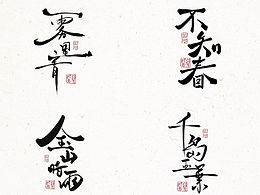 雾里青
不知春
金山时雨
千岛玉叶